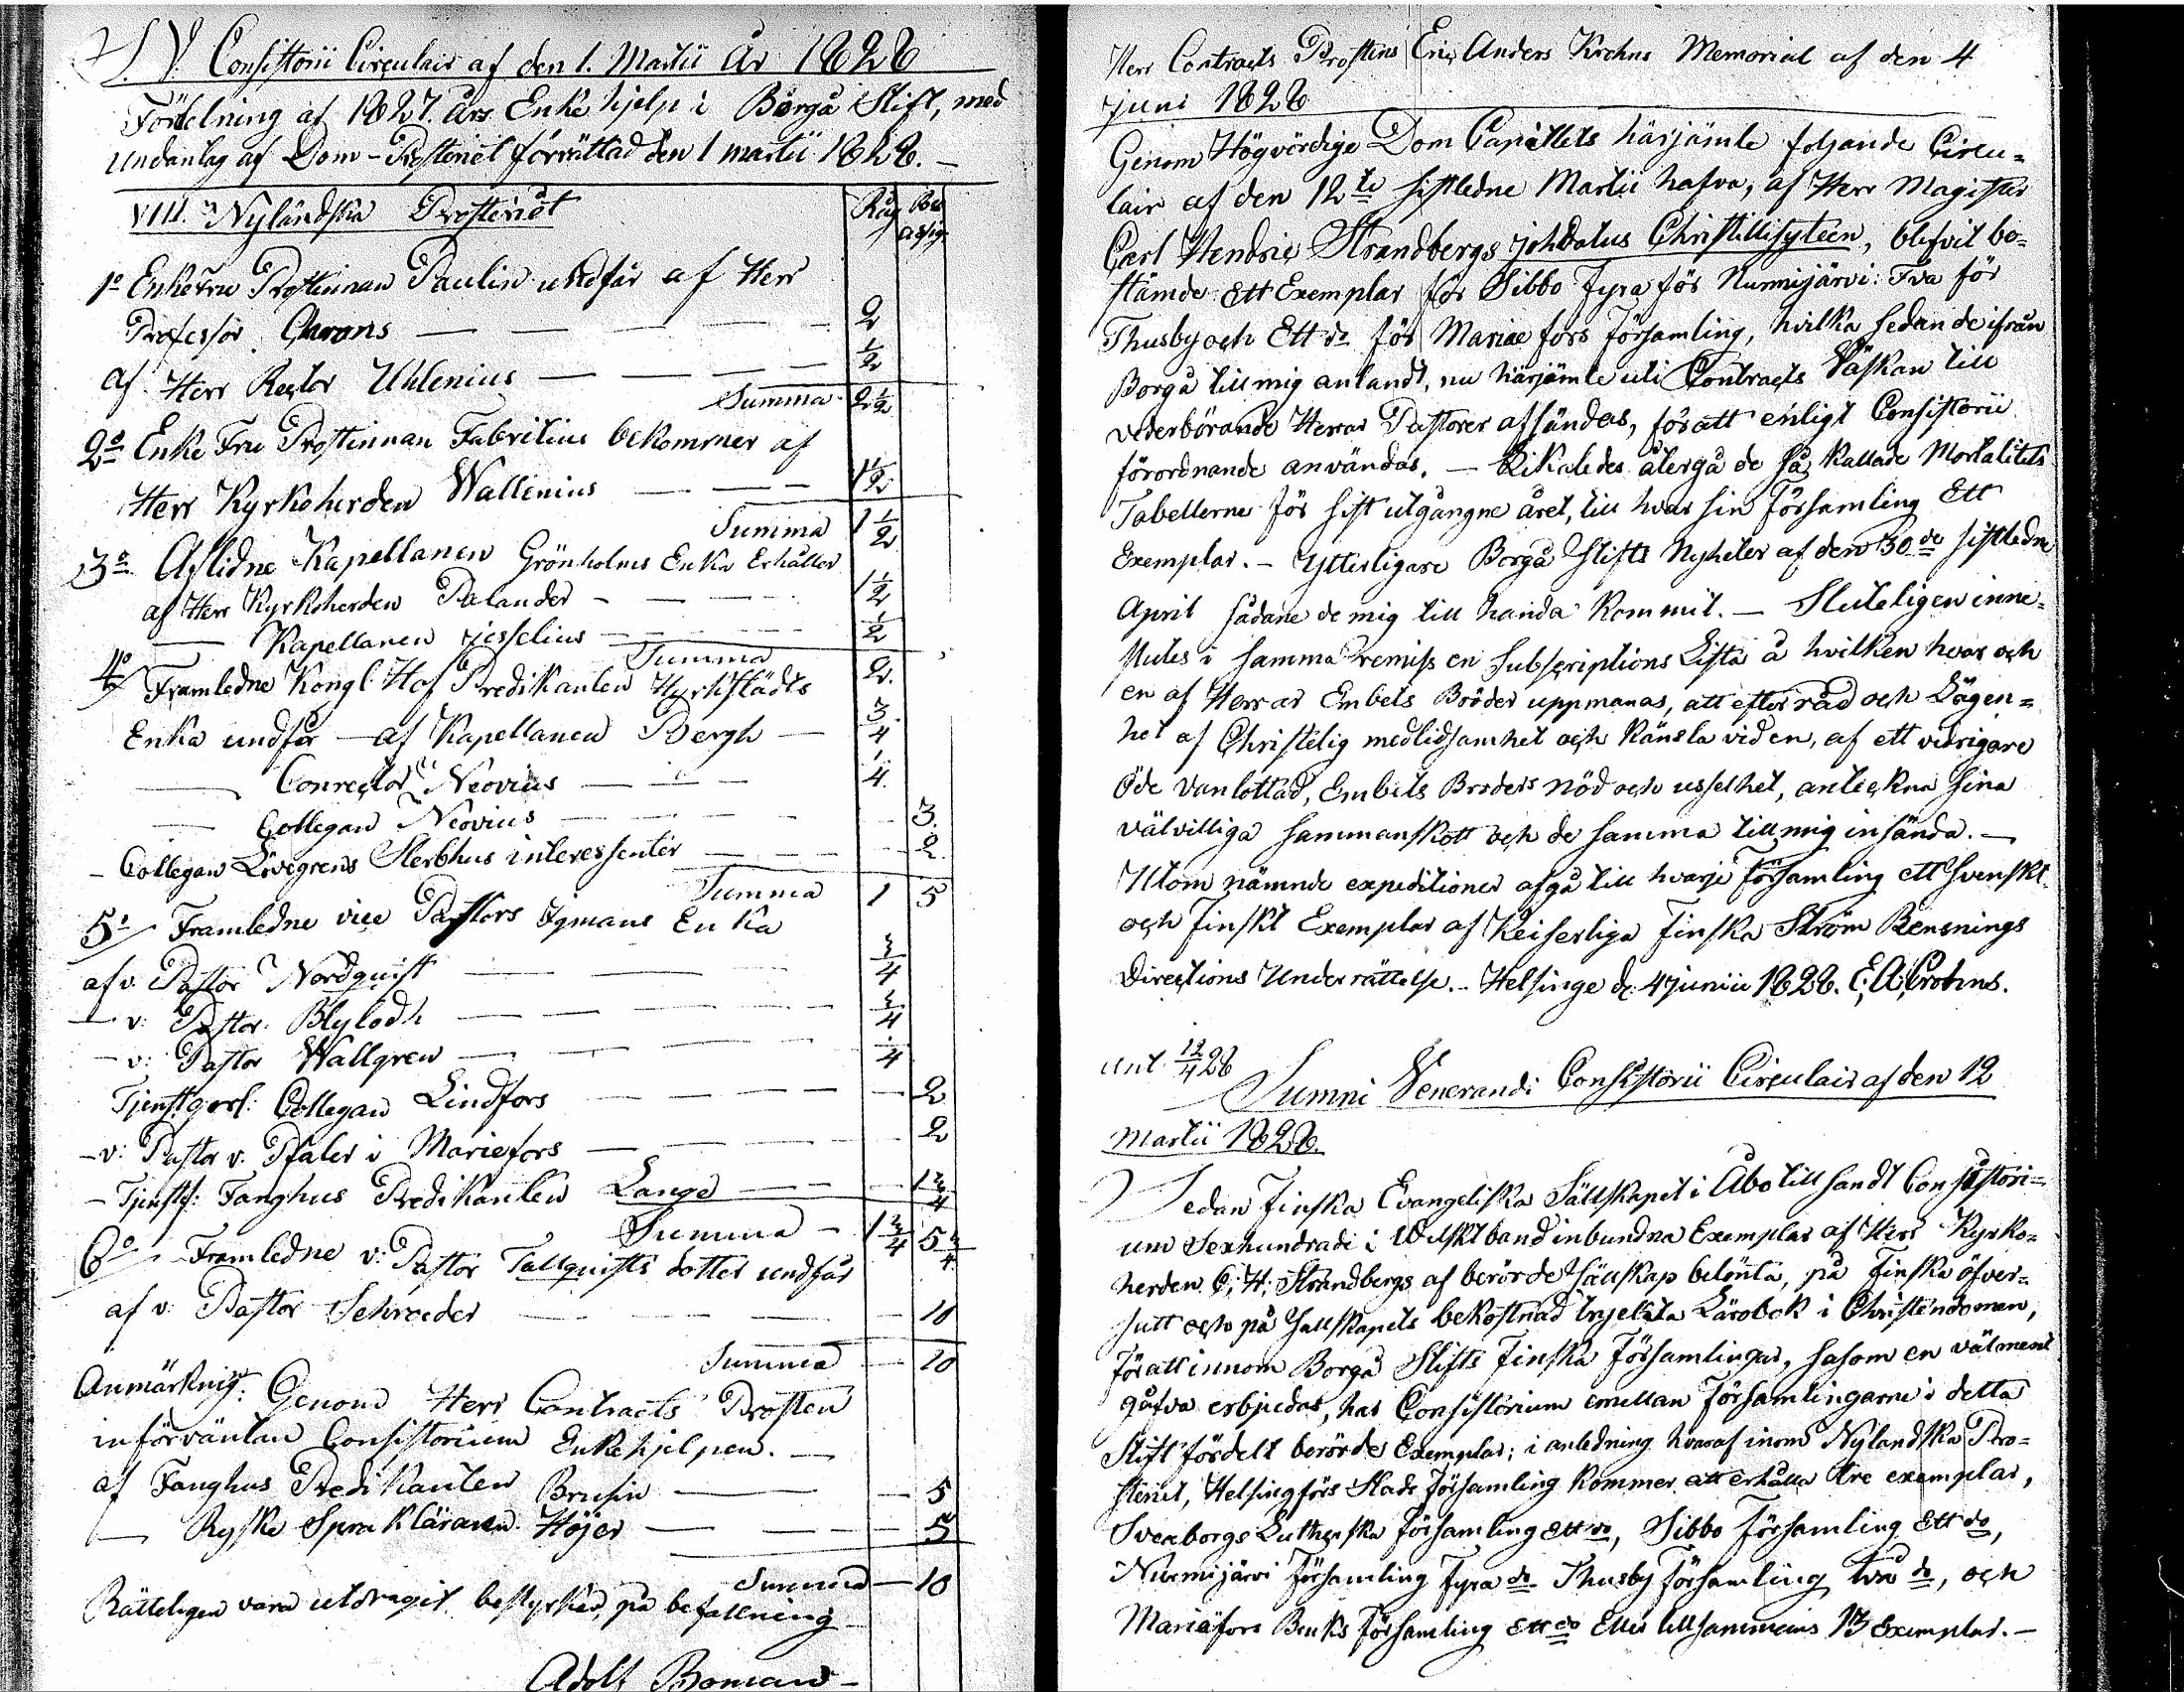 S. V. Consistorii Circulair af den 1. Martii År 1828
Fördelning af 1827. års Enke hjelp i Borgå Stift, med
undantag af Dom-Prosteriet förrättad den 1 martii 1828. –
VIII. Nyländska Prosteriet Råg Rub assig
1o Enke Fru Prostinnan Paulin undfår af Herr
Professor Garons — 2
af Herr Rector Uhlenius — ½
Summa 2½
2o Enke Fru Prostinnan Fabritius bekommer af
Herr Kyrkoherden Wallenius — 1½
Summa 1½
3o Aflidne Kapellanen Grönholms Enka Erhåller
af Herr Kyrkoherden Palander — 1½
— Kapellanen Jesselius — ½
Summa 2.
4o Framledne Kongl Hof Predikanten Hyrkstädts
Enka undfår — af Kapellanen Bergh — ¾
— Conrector Neovius — ¼
— Collegan Neovius — 3.
– Collegan Lövegrens Sterbhus interessenter — 2.
Summa 1 5
5o Framledne vice Pastors Igmans Enka
af v. Pastor Nordquist — ¾
— v: Pastor Blylodh — ¾
– v: Pastor Wallgren — ¼
Tjenstgörl: Collegan Lindfors — 2
– v: Pastor v. Pfaler i Mariefors — 2
– Tjenstf: Fanghus Predikanten Lange — 1¾
Summa – 1¾ 5¾
6o Framledne v: Pastor Tallquists dotter undfår
af v. Pastor Schroeder — 10
Summa — 10
Anmärkning: Genom Herr Contracts Prosten
införväntar Consistorium Enkehjelpen. —
af Fanghus Predikanten Brusin — 5
— Ryske Språkläraren Höjer — 5
Summa — 10
Rätteligen vara utdragit bestyrker, på befallning
Adolf Boman –
Herr Contracts Prostens Eric Anders Krohns Memorial af den 4
juni 1828
Genom Högvördige Dom Capitlets härjämte följande Circu=
lair af den 12te sistledne Martii hafva, af Herr Magister
Carl Hendric Strandbergs johdatus Christillisyteen, blifvit be=
stämde Ett Exemplar för Sibbo Fyra för Nurmijärvi: Två för
Thusby och Ett do för Mariae fors Församling, hvilka sedan de ifrån
Borgå till mig anlandt, nu härjämte uti Contracts Väskan till
vederbörande Herrar Pastorer afsändas, för att enligt Consistorii
förordnande användas. – Likaledes återgå de så kallade Mortalitets
Tabellerne för sist utgångne året, till hvar sin Församling Ett
Exemplar. – Ytterligare Borgå Stifts Nyheter af den 30de sistledne
April sådane de mig till handa kommit. – Sluteligen inne=
slutes i samma remiss en Subscriptions Lista å hvilken hvar och
en af Herrar Embets Bröder uppmanas, att efter råd och Lägen=
het af Christelig medlidsamhet och känsla vid en, af ett vidrigare
öde vanlottad, Embets Broders nöd och usselhet, anteckna sina
välvilliga sammanskott och de samma till mig insända. –
Utom nämnde expeditioner afgå till hvarje Församling ett Svenskt
och Finskt Exemplar af Keiserliga Finska Ström Rensnings
Directions Underrättelse. – Helsinge d: 4 junii 1828. E: A: Crohns.
Ant. 12/4 28
Summi Venerandi Consistorii Circulair af den 12
Martii 1828.
Sedan Finska Evangeliska Sällskapet i Åbo till sandt Consistori=
um Sexhundrade i Welskt band inbundna Exemplar af Herr Kyrko=
herden C: H: Strandbergs af berörde Sällskap belönta, på Finska öfver=
satt och på Sällskapets bekostnad tryckta Lärobok i Christendomen,
för att innom Borgå Stifts Finska Församlingar, såsom en välment
gåfva erbjudas, har Consistorium emellan Församlingarne i detta
Stift fördelt berörde Exemplar; i anledning hvaraf inom Nylandska Pro=
steriet, Helsingfors Stads Församling kommer att erhålla tre exemplar,
Sveaborgs Lutherska Församling ett do, Sibbo Församling Ett do,
Nurmijärvi Församling Fyra do Thusby Församling två do, och
Mariæfors Bruks Församling Ett do Eller tillsammans 13 Exemplar. –